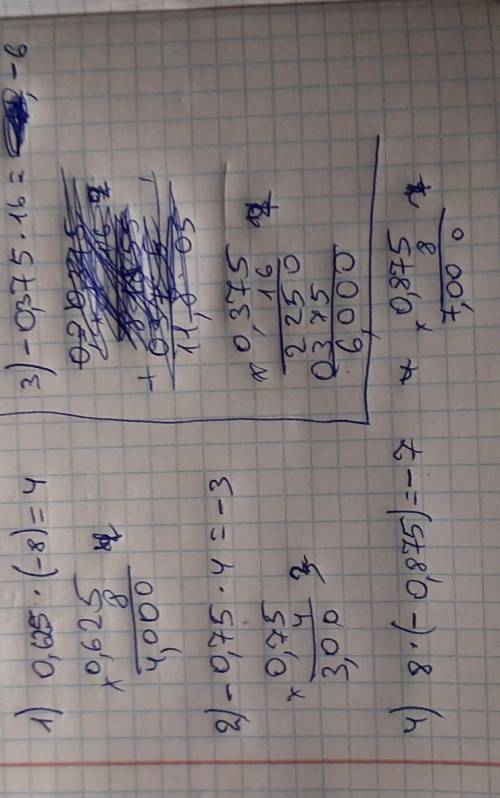 1) 0,625 · (-8) = 4
× 0,625
8
4,000
2) -0,75 · 4 = -3
× 0,75
4
3,00
3) -0,375 · 16 = -6
× 0,375
16
2250
0375
6,000
4) 8 · (-0,875) = -7
× 0,875
8
7,000